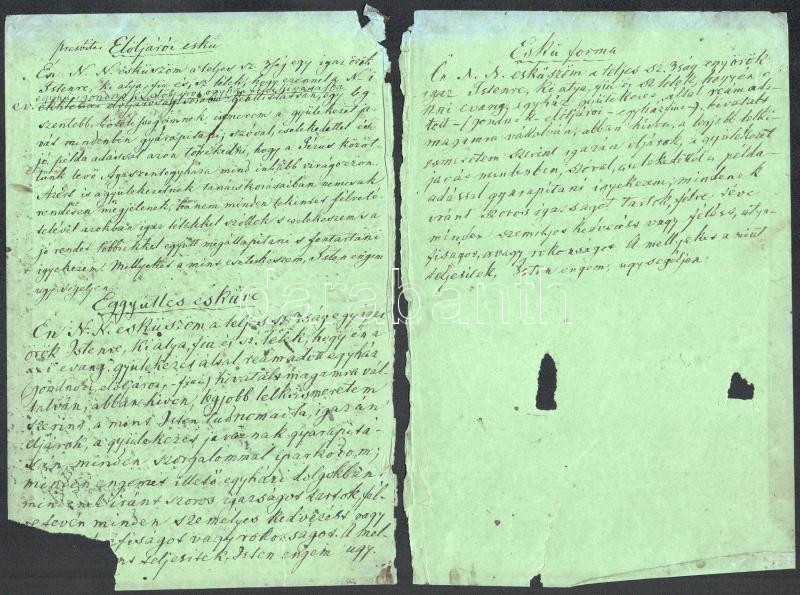 Elöljárói eskü
Én N. N. esküszöm a teljes sz. egy igaz örök
Istenre, ki atya, fia és sz. lélek, hogy N. i
szentebb, türelmesb ismerem a gyülekezet ja-
vát mindenben gyarapitani; szóval, cselekedettel és
jó példaadással azon törekedni, hogy a Jézus közöt-
tünk levő Anyaszentegyháza mind inkább virágozzon.
Azért is a gyülekezetnek tanácskozásaiban nemcsak
rendesen megjelenek, hanem minden tekintet félrete-
telével azokban igaz lélekkel szóllok s cselekszem s a
jó rendet többiekkel együtt megállapitani s fentartani
igyekezem. Mellyeket a mint cselekeszem, Isten engem
ugy segéljen.
Eggyüttes esküre
Én N. N. esküszöm a teljes sz. 3ság egy igaz
örök Istenre, ki atya, fia és sz. lélek, hogy én a
n i evang. gyülekezet által reám adott egyház
gondnoki, elöljárói, -fiui) hivatalt magamra vál-
lalván, abban hiven, legjobb lelkiismeretem
szerint, a mint Isten tudnom adta, igazán
eljárok, a gyülekezet javának gyarapitá-
sán, minden szorgalommal iparkodom;
minden engemet illető egyházi dolgokban
mindenki iránt szoros igazságot tartok, fél-
retevén minden személyes kedvezést vagy
fiságot vagy rokonságot. A mel-
teljesitek, Isten engem ugy.
Eskü forma
Én N. N. esküszöm a teljes sz. 3ság egy örök
igaz Istenre, ki atya, fiu és sz. lélek, hogy én a
N i evang. egyház gyülekezet által reám ada-
tott - (gondnoki - elöljárói - egyházfiui -) hivatalt
magamra vállalván, abban hiven, a legjobb lelki-
esmeretem szerint igazán eljárok, a gyülekezet
javát mindenben, szóval, cselekedettel s példa-
adással gyarapitani igyekezem; mindenek
iránt szoros igazságot tartok, félre téve
minden személyes kedvezést vagy félést, atya-
fiságot, avagy rokonságot. A mellyeket a mint
teljesitek, Isten engem ugy segéljen.
darabanth